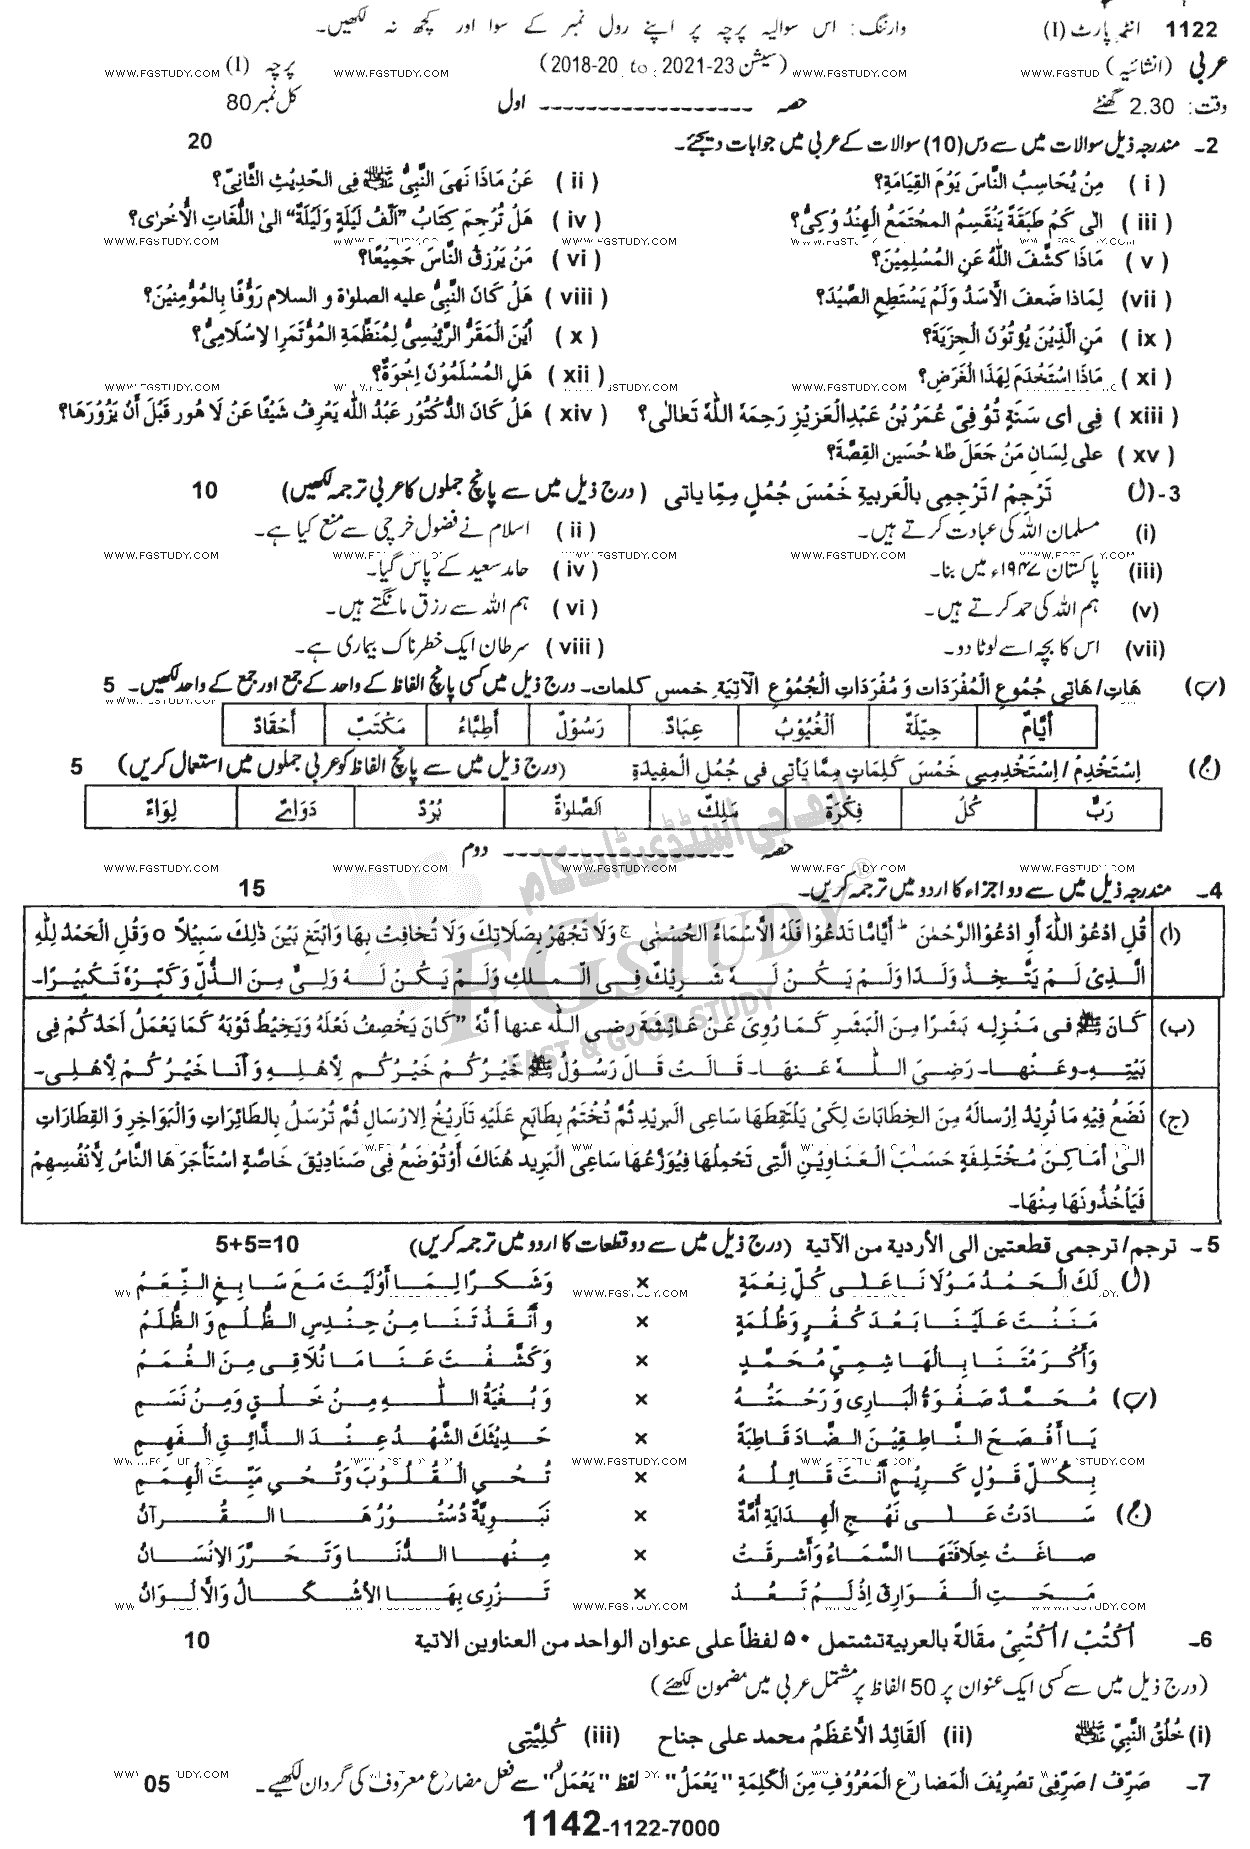 1122 انٹر پارٹ (I) وارننگ: اس سوالیہ پرچہ پر اپنے رول نمبر کے سوا اور کچھ نہ لکھیں۔
عربی (انشائیہ) (سیشن 2018-20 to 2021-23) پرچہ (I)
وقت: 2.30 گھنٹے حصہ ------------------ اول کل نمبر 80
2۔ مندرجہ ذیل سوالات میں سے دس (10) سوالات کے عربی میں جوابات دیجئے۔ 20
(i) مِنْ يُحَاسِبُ النَّاسَ يَوْمَ الْقِيَامَةِ؟ (ii) عَنْ مَاذَا نَهَى النَّبِيُّ ﷺ فِى الْحَدِيْثِ الثَّانِيْ؟
(iii) الٰى كَمْ طَبَقَةً يَنْقَسِمُ الْمُجْتَمَعُ الْهِنْدُوْكِيُّ؟ (iv) هَلْ تُرْجِمَ كِتَابُ "اَلْفُ لَيْلَةٍ وَلَيْلَةٌ" الىٰ اللُّغَاتِ الْأُخْرٰى؟
(v) مَاذَا كَشَّفَ اللّٰهُ عَنِ الْمُسْلِمِيْنَ؟ (vi) مَنْ يَرْزِقُ النَّاسَ جَمِيْعًا؟
(vii) لِمَاذَا ضَعفَ الْأَسَدُ وَلَمْ يَسْتَطِعِ الصَّيْدَ؟ (viii) هَلْ كَانَ النَّبِيُّ عليه الصلوٰة و السلام رَؤُفًا بِالْمُؤْمِنِيْنَ؟
(ix) مَنِ الَّذِيْنَ يُؤْتُوْنَ الْجِزْيَةَ؟ (x) أَيْنَ الْمَقَرُّ الرَّئِيْسِيُّ لِمُنَظَّمَةِ الْمُؤْتَمَرِ الْاِسْلَامِيُّ؟
(xi) مَاذَا اسْتَخْدَمَ لِهٰذَا الْغَرَضِ؟ (xii) هَلِ الْمُسْلِمُوْنَ اِخْوَةٌ؟
(xiii) فِى اى سَنَةٍ تُوُفِّىَ عُمَرُ بْنُ عَبدِالْعَزِيْزِ رَحِمَهُ اللّٰهُ تَعَالٰى؟ (xiv) هَلْ كَانَ الدُّكْتُوْرُ عَبْدُ اللّٰه يَعْرِفُ شَيْئًا عَنْ لَاهُور قَبْلَ أَنْ يَزُوْرَهَا؟
(xv) على لِسَانِ مَنْ جَعَلَ طٰهٰ حُسَيْن الْقِصَّةَ؟
3-(ل) تَرْجِمْ / تَرْجِمِى بِالْعَرَبِيةِ خَمْسَ جُمَلٍ مِمَّا ياتى (درج ذیل میں سے پانچ جملوں کا عربی ترجمہ لکھیں) 10
(i) مسلمان اللہ کی عبادت کرتے ہیں۔ (ii) اسلام نے فضول خرچی سے منع کیا ہے۔
(iii) پاکستان ۱۹۴۷ء میں بنا۔ (iv) حامد سعید کے پاس گیا۔
(v) ہم اللہ کی حمد کرتے ہیں۔ (vi) ہم اللہ سے رزق مانگتے ہیں۔
(vii) اس کا بچہ اسے لوٹا دو۔ (viii) سرطان ایک خطرناک بیماری ہے۔
(ب) هَاتِ/ هَاتِى جُمُوعِ الْمُفْرَدَاتِ وَ مُفْرَدَاتِ الْجُمُوْعِ الْآتِيَةِ خمس كلمات۔ درج ذیل میں کسی پانچ الفاظ کے واحد کے جمع اور جمع کے واحد لکھیں۔ 5
أَيَّامٌ حِيْلَةٌ اَلْغُيُوْبُ عِبَادٌ رَسُوْلٌ أَطِبَّاءُ مَكْتَبٌ أَحْقَادٌ
(ج) اِسْتَخْدِمْ / اِسْتَخْدِمِى خَمْسَ كَلِمَاتٍ مِمَّا يَأْتِى فى جُمَلِ الْمفِيْدَةِ (درج ذیل میں سے پانچ الفاظ کو عربی جملوں میں استعمال کریں) 5
رَبٌّ كُلُ فِكْرَةٌ مَلِكٌ اَلصَّلوٰةُ بُرْدٌ دَوَاءٌ لِوَاءٌ
حصہ ------------------ دوم
4۔ مندرجہ ذیل میں سے دو اجزاء کا اردو میں ترجمہ کریں۔ 15
(ا) قُلِ ادْعُوْ اللّٰهَ أَوِ ادْعُوْا الرَّحْمٰنَ ؕ أَيًّامَّا تَدْعُوْا فَلَهُ الْأَسْمَاءُ الْحُسْنٰى ۚ وَلَا تَجْهَرْ بِصَلَاتِكَ وَلَا تُخَافِتْ بِهَا وَابْتَغِ بَيْنَ ذٰلِكَ سَبِيْلًا ٥ وَقُلِ الْحَمْدُ لِلّٰهِ
الَّذِىْ لَمْ يَتَّخِذْ وَلَدًا وَلَمْ يَكُنْ لَهٗ شَرِيْكٌ فِى الْمُلكِ وَلَمْ يَكُنْ لَهٗ وَلِىٌّ مِنَ الذُّلِّ وَكَبِّرْهُ تَكْبِيْرًا۔
(ب) كَانَ ﷺ فى مَنْزِلِه بَشَرًا مِنَ الْبَشَرِ كَمَا رُوِىَ عَنْ عَائِشَةَ رضى الله عنها أنَّهٗ "كَانَ يَخْصِفُ نَعْلَهٗ وَيَخِيْطُ ثَوْبَهٗ كَمَا يَعْمَلُ اَحَدُكُمْ فِى
بَيْتِهٖ۔ وَعَنْهَا۔ رَضِىَ اللّٰهُ عَنهَا۔ قَالَتْ قَالَ رَسُوْلُ ﷺ خَيْرُكُمْ خَيْرُكُمْ لِأَهْلِهٖ وَ أَنَا خَيْرُكُمْ لِأَهْلِى۔
(ج) نَضَعُ فِيْهِ مَا نُرِيْدُ اِرْسَالَهٗ مِنَ الْخِطَابَاتِ لِكَىْ يَلْتَقِطَهَا سَاعِى الْبَرِيْدِ ثُمَّ تُخْتَمُ بِطَابَعٍ عَلَيْهِ تَارِيْخُ الْاِرْسَالِ ثُمَّ تُرْسَلُ بِالطَّائِرَاتِ وَالْبَوَاخِرِ وَ الْقِطَارَاتِ
الىٰ أَمَاكِنَ مُخْتَلِفَةٍ حَسَبَ الْعَنَاوِيْنِ الَّتِى تَحْمِلُهَا فَيُوَزِّعُهَا سَاعِى الْبَرِيْدِ هُنَاكَ أَوْتُوْضَعُ فِى صَنَادِيْقَ خَاصَّةٍ اسْتَأْجَرَهَا النَّاسُ لِأَنْفُسِهِمْ
فَيَأْخُذُوْنَهَا مِنْهَا۔
5۔ ترجم/ ترجمى قطعتين الى الأردية من الآتية (درج ذیل میں سے دو قطعات کا اردو میں ترجمہ کریں) 5+5=10
(ل) لَكَ الْحَمْدُ مَوْلَانَا عَلٰى كُلِّ نِعْمَةٍ × وَشُكْرًا لِمَا أَوْلَيْتَ مَعَ سَابِغِ النِّعَمُ
مَنَنْتَ عَلَيْنَا بَعْدَ كُفْرٍ وَظُلْمَةٍ × وأَنْقَذْتَنَا مِنْ حِنْدِسِ الظُّلْمِ وَ الظُّلَمُ
وَأَكْرَمْتَنَا بِالْهَاشِمِىِّ مُحَمَّدٍ × وَكَشَّفْتَ عَنَّا مَا نُلَاقِى مِنَ الْغُمَمُ
(ب) مُحَمَّدٌ صَفْوَةُ الْبَارِى وَ رَحْمَتُهٗ × وَ بُغْيَةُ اللّٰهِ مِنْ خَلْقٍ وَمِنْ نَسَمِ
يَا أَفْصَحَ النَّاطِقِيْنَ الضَّادَ قَاطِبَةً × حَدِيْثُكَ الشَّهْدُ عِنْدَ الذَّائِقِ الْفَهِمِ
بِكُلِّ قَوْلٍ كَرِيْمٍ أَنْتَ قَائِلُهٗ × تُحْىِ الْقُلُوْبَ وَتُحْىِ مَيِّتَ الْهِمَمِ
(ج) سَادَتْ عَلٰى نَهْجِ الْهِدَايَةِ أُمَّةٌ × نَبَوِيَّةٌ دُسْتُوْرُهَا الْقُرآنُ
صاغَتْ خِلَافَتَهَا السَّمَاءُ وَأَشْرَقَتْ × مِنْهَا الدُّنَا وَتَحَرَّرَ الْاِنْسَانُ
مَحَتِ الْفَوَارِقَ اِذْلَمْ تَعُدْ × تَزْرِى بِهَا الْأَشْكَالُ وَالْأَلْوَانُ
6۔ اُكْتُبْ / اُكْتُبِىْ مقالةً بالعربية تشتمل ۵۰ لفظاً على عنوان الواحد من العناوين الاتية 10
(درج ذیل میں سے کسی ایک عنوان پر 50 الفاظ پر مشتمل عربی میں مضمون لکھئے)
(i) خُلُقُ النَّبِيِّ ﷺ (ii) اَلْقَائِدُ الْأَعْظَمُ محمد على جناح (iii) كُلِيَّتِى
7۔ صَرِّفْ / صَرِّفِى تصْرِيْفَ الْمَضَارِعِ الْمَعْرُوْفِ مِنَ الْكَلِمَةِ "يَعْمَلُ" لفظ "يَعْمَلُ" سے فعل مضارع معروف کی گردان لکھیے۔ 05
1142-1122-7000
WWW.FGSTUDY.COM
ایف جی اسٹڈی ڈاٹ کام
FGSTUDY
FAST & GOOD STUDY